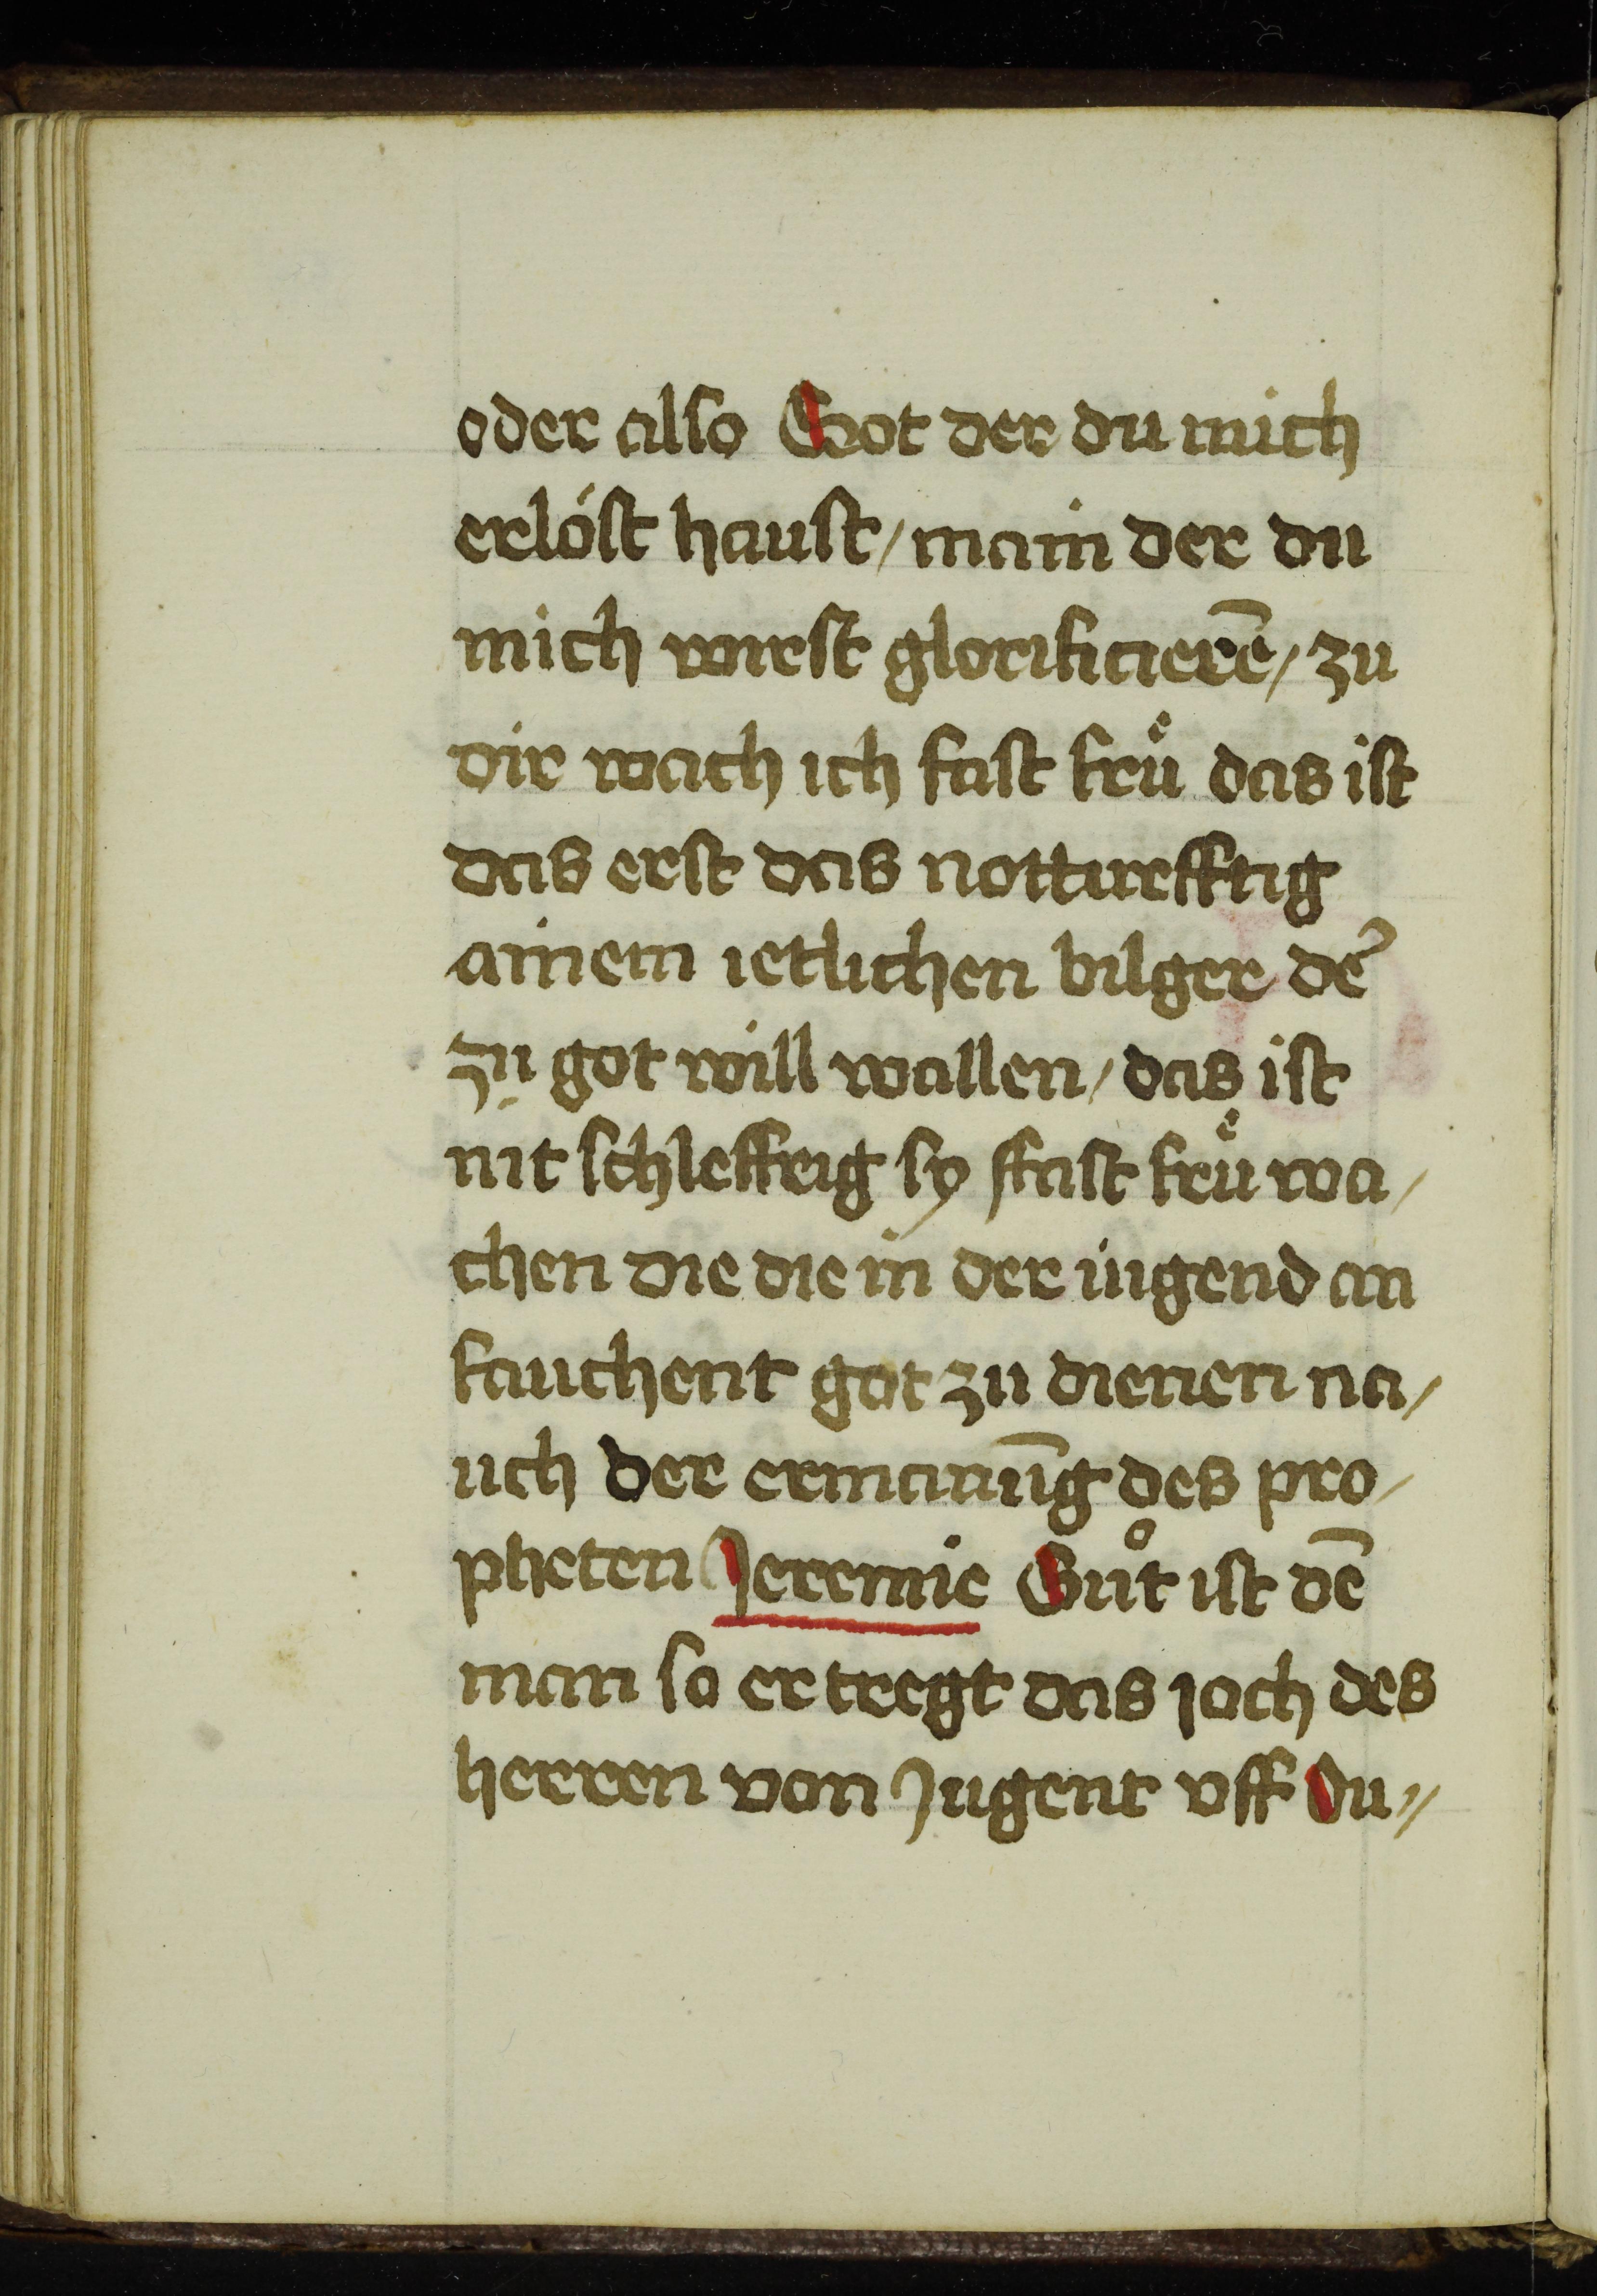 oder also Got der du mich
erlöst haust / main der du
mich wirst glorificierē / zu
dir wach ich fast fruͤ das ist
das erst das notturfftig
ainem ietlichen bilger de᷑
zu got will wallen / das ist
nit schleffrig sy ffast fruͤ wa /
chen die die in der iugend an
fauchent got zu dienen na /
uch der ermanūg des pro /
pheten Jeremie Guͦt ist dē
man so er tregt das joch des
herren von Jugent vff Du //